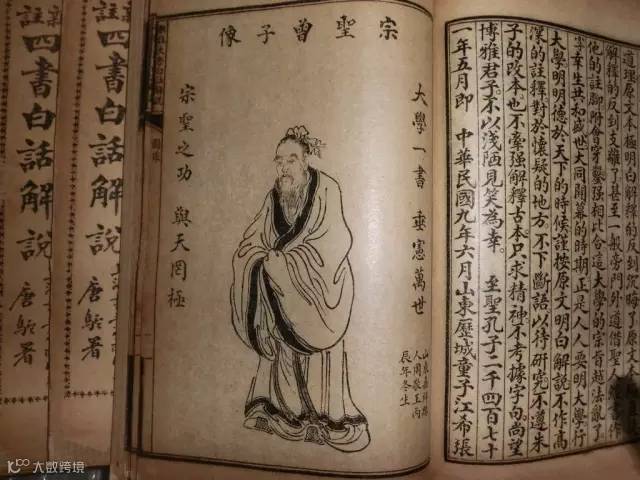 道理原文本極明白解釋的到沉晦了原
解釋的反到支離了甚至一般旁門外道借聖人作
他的註脚附會穿鑿强相比合這大學的宗旨越法亂了
幸生丑和盛世大同開幕的時期正是人人要明大學行
大學明明德於天下的時候謹按原文明白解說不作高
深的註釋對於懷疑的地方不下斷語以待研究不遵朱
子的改本也不牽强解釋古本只求精神不考據字句尚望
博雅君子不以淺陋見笑為幸 至聖孔子二千四百七十
一年五月即 中華民國九年六月山東歷城童子江希張
宗聖曾子像
大學一書 垂憲萬世
山東嘉祥縣
人周敬王丙
辰年冬生
宗聖之功 與天罔極
四書白話解說 唐駝署
四書白話解說 唐駝署
大数跨境